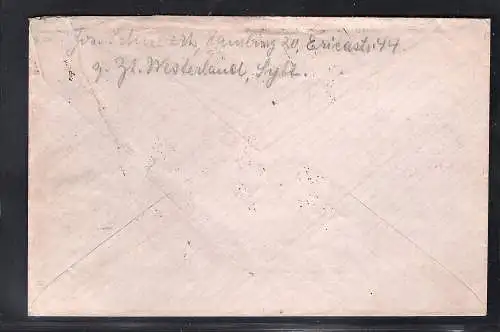 Hamburg 20, Ericastr. 44
z. Zt. Westerland, Sylt.